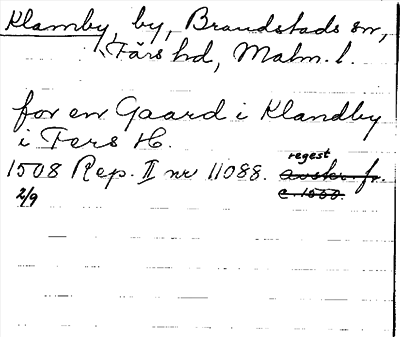 Klamby, by, Brandstads sn,
Färs hd, Malm. l.
for en Gaard i Klandby
i Fers H.
regest
1508 Rep. II nr 11088. avskr. fr.
2/9 c. 1600.